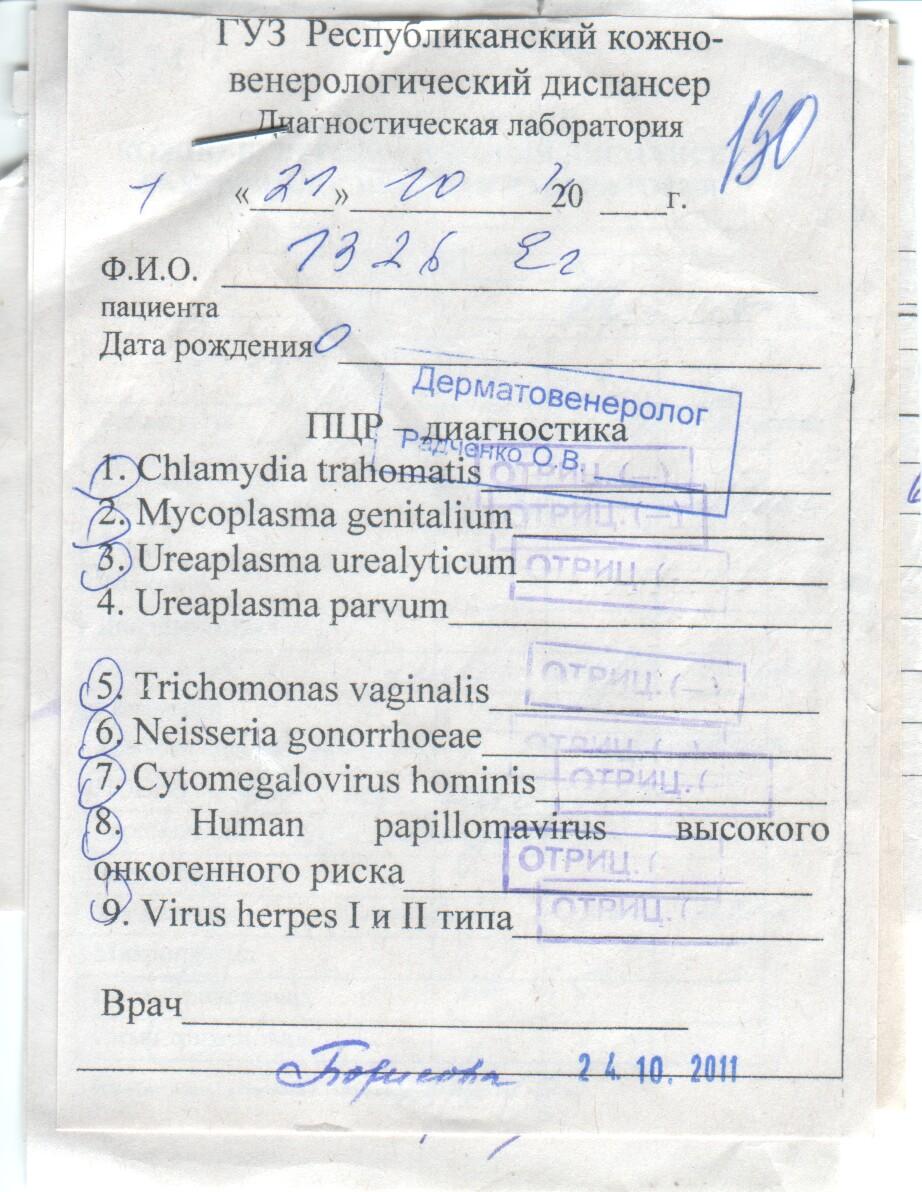 ГУЗ Республиканский кожно-
венерологический диспансер
Диагностическая лаборатория
130
1 «21» 10 20 г.
Ф.И.О. 1326 Ег
пациента
Дата рождения 0
Дерматовенеролог
Радченко О.В.
ПЦР – диагностика
1. Chlamydia trahomatis ОТРИЦ. (—)
2. Mycoplasma genitalium ОТРИЦ. (—)
3. Ureaplasma urealyticum ОТРИЦ. (
4. Ureaplasma parvum
5. Trichomonas vaginalis ОТРИЦ. (—)
6. Neisseria gonorrhoeae ОТРИЦ. (—)
7. Cytomegalovirus hominis ОТРИЦ. (
8. Human papillomavirus высокого
онкогенного риска ОТРИЦ. (
9. Virus herpes I и II типа ОТРИЦ. (—
Врач
Борисова 24.10.2011